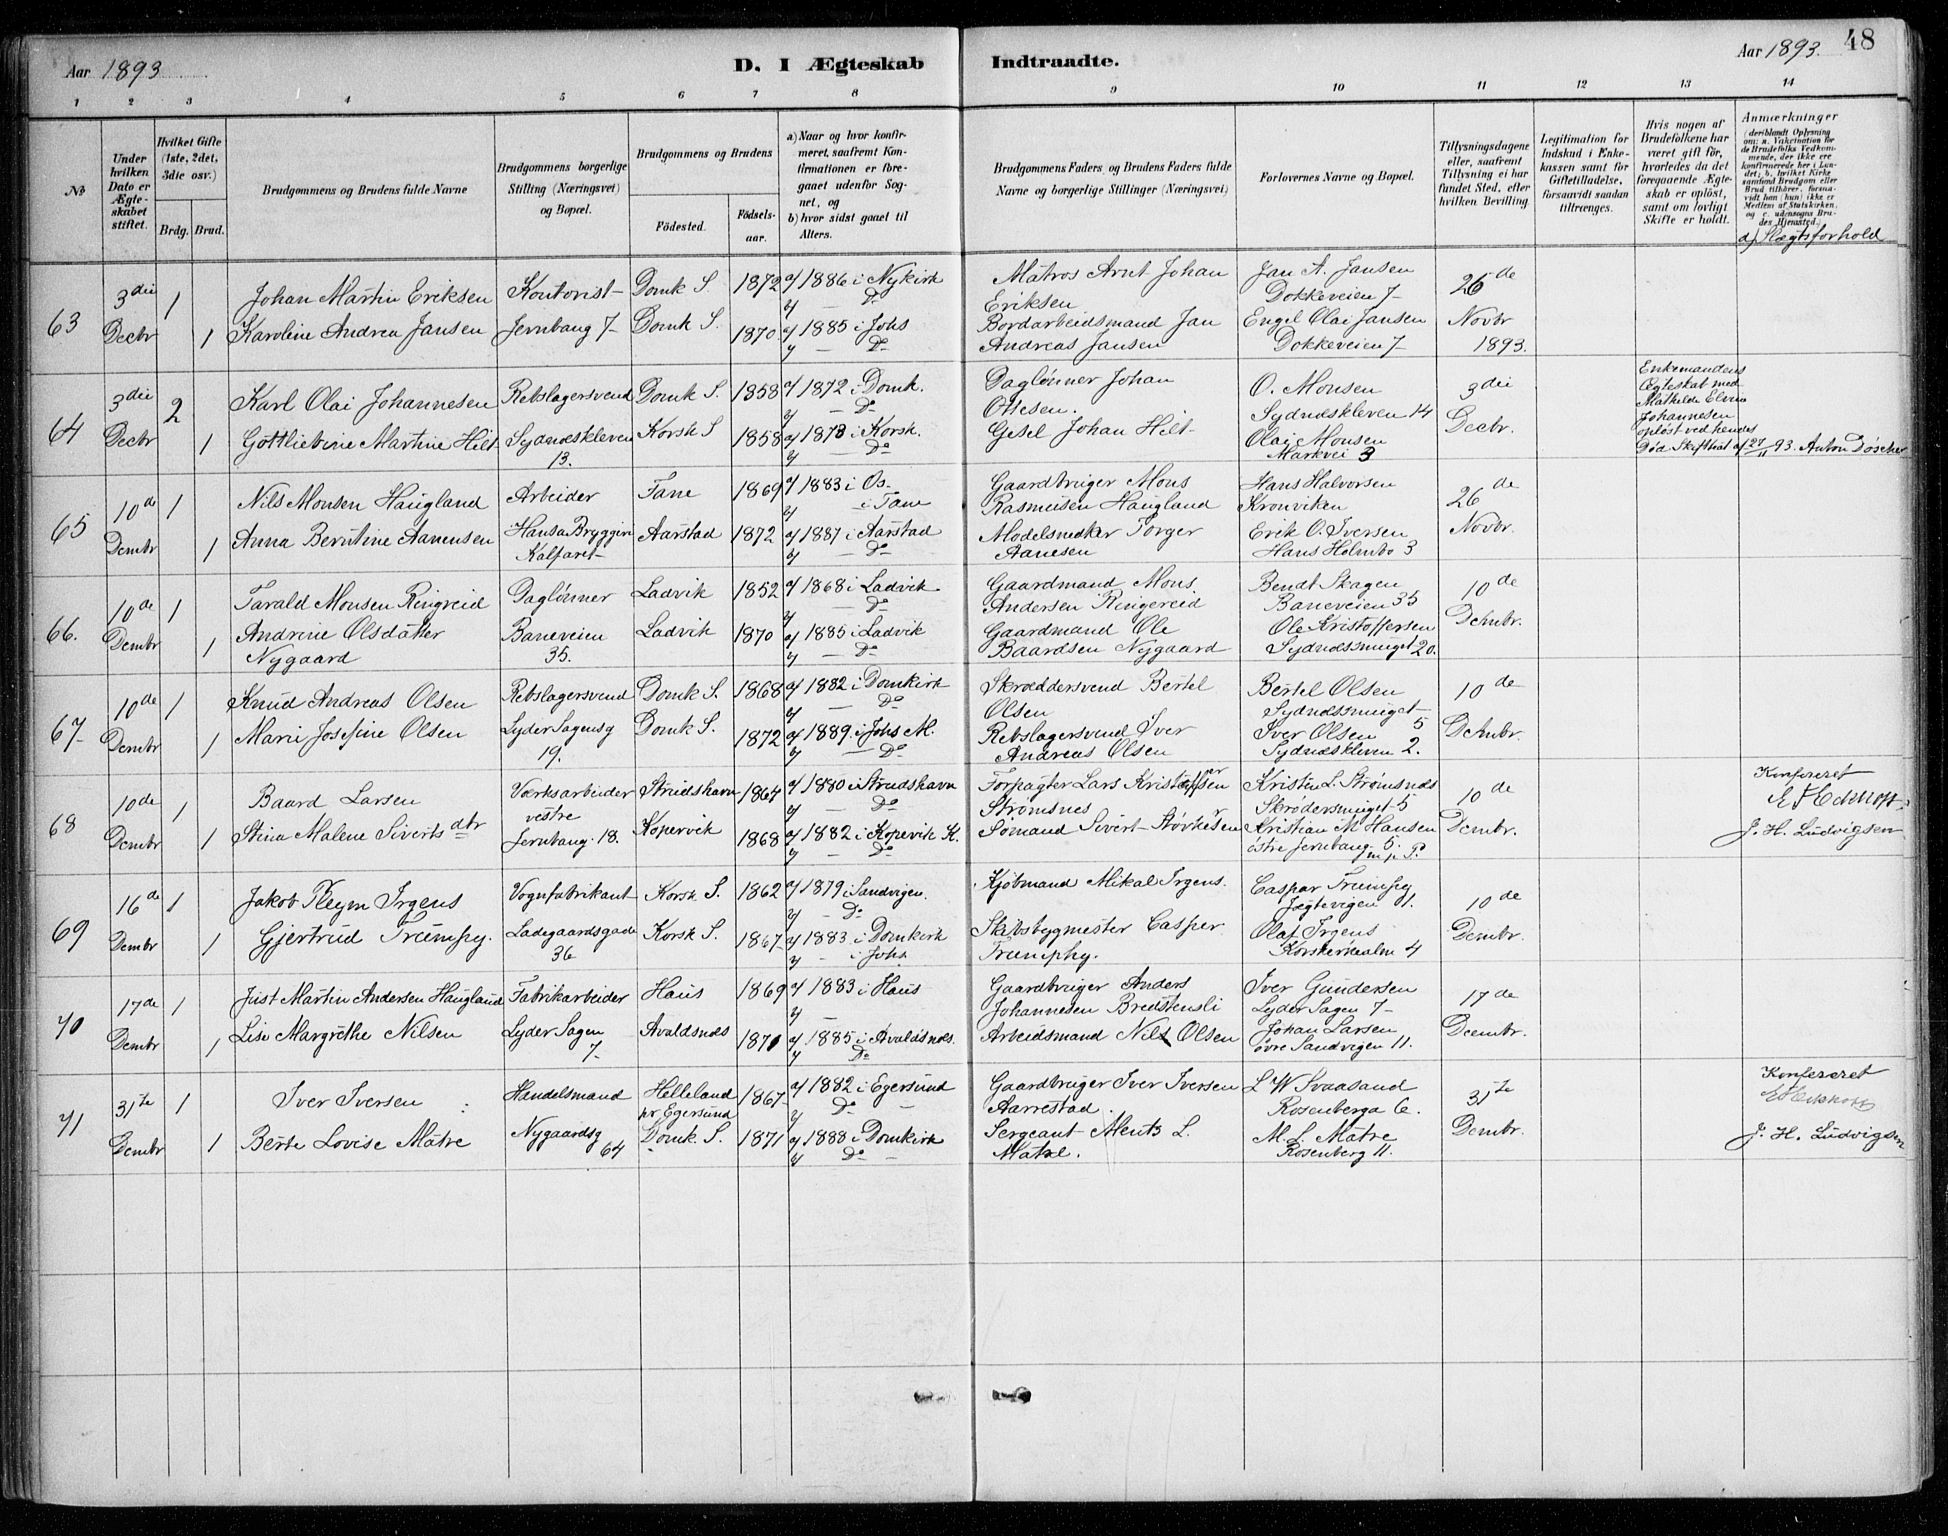 48
Aar 1893
D. I Ægteskab Indtraadte.
Aar 1893.
1 2 3 4 5 6 7 8 9 10 11 12 13 14
№
Under hvilken Dato er Ægteskabet stiftet.
Hvilket Gifte (1ste, 2det, 3die osv.)
Brdg. Brud.
Brudgommens og Brudens fulde Navne
Brudgommens borgerlige Stilling (Næringsvei) og Bopæl.
Brudgommens og Brudens
Födested.
Födselsaar.
a) Naar og hvor konfirmeret, saafremt Konfirmationen er foregaaet udenfor Sognet, og
b) hvor sidst gaaet til Alters.
Brudgommens Faders og Brudens Faders fulde Navne og borgerlige Stillinger (Næringsvei)
Forlovernes Navne og Bopæl.
Tillysningsdagene eller, saafremt Tillysning ei har fundet Sted, efter hvilken Bevilling.
Legitimation for Indskud i Enkekassen samt for Giftetilladelse, forsaavidt saadan tiltrænges.
Hvis nogen af Brudefolkene har været gift för, hvorledes da det foregaaende Ægteskab er oplöst, samt om lovligt Skifte er holdt.
Anmærkninger
(deriblandt Oplysning om: a. Vakcination for de Brudefolks Vedkommende, der ikke ere konfirmerede her i Landet; b. hvilket Kirkesamfund Brudgom eller Brud tilhörer, forsaavidt han (hun) ikke er Medlem af Statskirken, og c. udensogns Brudes Hjemsted.)
d) Slægtsforhold
63
3die Decbr
1
Johan Martin Eriksen
Kontorist
Domk S
1872
a/ 1886 i Nykirk
b/ — Do
Matros Arnt Johan
Eriksen
Jan A. Jansen
Dokkeveien 7
26de
Novbr
1893.
1
Karoline Andrea Jansen
Jernbang 7
Domk S.
1870
a/ 1885 i Johs
b/ — Do
Bordarbeidsmand Jan
Andreas Jansen
Engel Olai Jansen
Dokkeveien 7
64
3die Decbr
2
Karl Olai Johannesen
Rebslagersvend
Domk S.
1858
a/ 1872 i Domk.
b/ — Do
Daglønner Johan
Ottesen.
O. Monsen
Sydneskleven 14
3die
Decbr.
Enkemandens
Ægteskab med
Mathilde
Johannesen
opløst ved hendes
Død Skifteat af 27/11 93. Anton Døscher
1
Gottliebine Martine Hilt
Sydneskleven
13.
Korsk S
1858
a/ 1873 i Korsk.
b/ — Do
Gesel Johan Hilt
Olai Monsen
Markvei 3
65
10de Dembr
1
Nils Monsen Haugland
Arbeider
Fane
1869
a/ 1883 i Os.
b/ i Fane
Gaardbruger Mons
Rasmusen Haugland
Hans Halvorsen
Kronviken
26de
Novbr.
1
Anna Berntine Aanensen
Hansa Bryggeri
Kalfaret
Aarstad
1872
a/ 1887 i Aarstad
b/ — Do
Modelsnedker Torger
Aanesen
Erik O. Iversen
Hans Holmbo 3
66.
10de Dembr
1
Tarald Monsen Ringreid
Daglønner
Ladvik
1852
a/ 1868 i Ladvik
b/ — Do
Gaardmand Mons
Andersen Ringereid
Bendt Skagen
Baneveien 35
10de
Dembr.
1
Andrine Olsdatter
Nygaard
Baneveien
35.
Ladvik
1870
a/ 1885 i Ladvik
b/ — Do
Gaardmand Ole
Baardsen Nygaard
Ole Kristoffersen
Sydnessmuget 20.
67
10de Dembr
1
Knud Andreas Olsen
Rebslagersvend
Domk S.
1868
a/ 1882 i Domkirk
b/ — Do
Skræddersvend Bertel
Olsen
Bertel Olsen
Sydnessmuget
5
10de
Dembr.
1
Marie Josefine Olsen
Lyder Sagensg
19.
Domk S.
1872
a/ 1889. i Johs M.
b/ — Do
Rebslagersvend Iver
Andreas Olsen
Iver Olsen
Sydneskleven 2.
68
10de Dembr
1
Baard Larsen
Værksarbeider
vestre
Strudshavn
1864
a/ 1880 i Strudshavn
b/ — Do
Forpagter Lars Kristoffersen
Strømsnes
Kristen L. Strømsnes
Skrædersmuget 5
10de
Dembr.
Konfereret
E F Eckhoff
J. H. Ludvigsen
1
Stina Malene Siverts dtr
Jernbang. 18.
Kopervik
1868
a/ 1882 i Kopervik K.
b/ — Do
Sømand Sivert Størkesen
Kristian M Hansen
østre Jernbang 5.
69
16de Dembr
1
Jakob Kleym Irgens
Vognfabrikant
Korsk S.
1862
a/ 1879 i Sandvigen.
b/ — Do
Kjøbmand Mikal Irgens.
Caspar Trumpy
Jægtevigen 1.
10de
Dembr.
1
Gjertrud Trumpy.
Ladegaardsgade
36
Korsk S.
1867
a/ 1883. i Domkirk
b/ - i Johs
Skibsbygmester Casper
Trumphy.
Olaf Irgens
Korskirkealm 4
70
17de Dembr
1
Just Martin Andersen Haugland
Fabrikarbeider
Haus
1869
a/ 1883 i Haus
b/ —
Gaardbruger Anders
Johannesen Bredstensli
Iver Gundersen
Lyder Sagen 7
17de
Dcembr.
1
Lise Margrethe Nilsen
Lyder Sagen
7
Avaldsnes
1871
a/ 1885 i Avaldsnes.
b/ Do
Arbeidsmand Nils Olsen
Johan Larsen
øvre Sandvigen 11.
71
31te Dembr
1
Iver Iversen
Handelsmand
Helleland
pr Egersund
1867
a/ 1882 i Egersund
b/ Do
Gaardbruger Iver Iversen
Aarrestad.
L W Svaasand
Rosenberga 6.
31te
Dembr.
Konfereret
E F Eckhoff
J. H. Ludvigsen
1
Berte Lovise Matre
Nygaardsg
64
Domk S.
1871
a/ 1888 i Domkirk
b/ Do
Sergeant Ments L.
Matre.
M. L. Matre
Rosenberg 11.